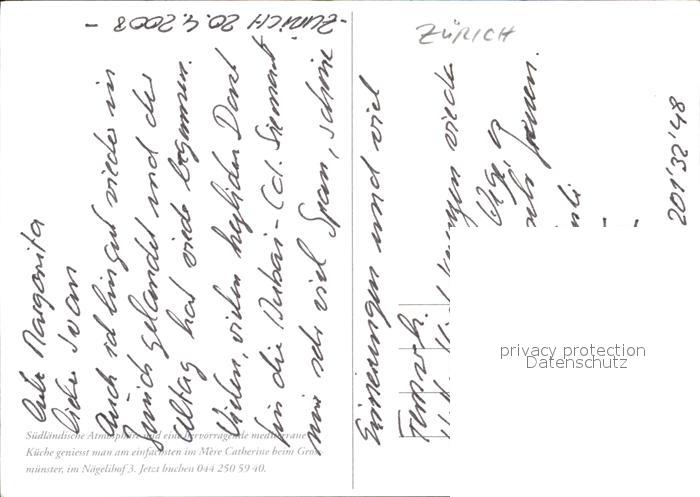 - ZÜRICH 20.4.2008 -
Liebe Margarita
Lieber Ivan
Auch ich bin gut wieder in
Zürich gelandet und der
Alltag hat wieder begonnen.
Vielen, vielen herzlichen Dank
für die Dubai-Cd. Sie macht
mir sehr viel Spass, schöne
Erinnerungen und viel
Fernweh.
wieder
ZÜRICH
201'32'48
Südländische Atmosphäre und eine hervorragende mediterrane
Küche geniesst man am einfachsten im Mère Catherine beim Gross-
münster, im Nägelihof 3. Jetzt buchen 044 250 59 40.
privacy protection
Datenschutz